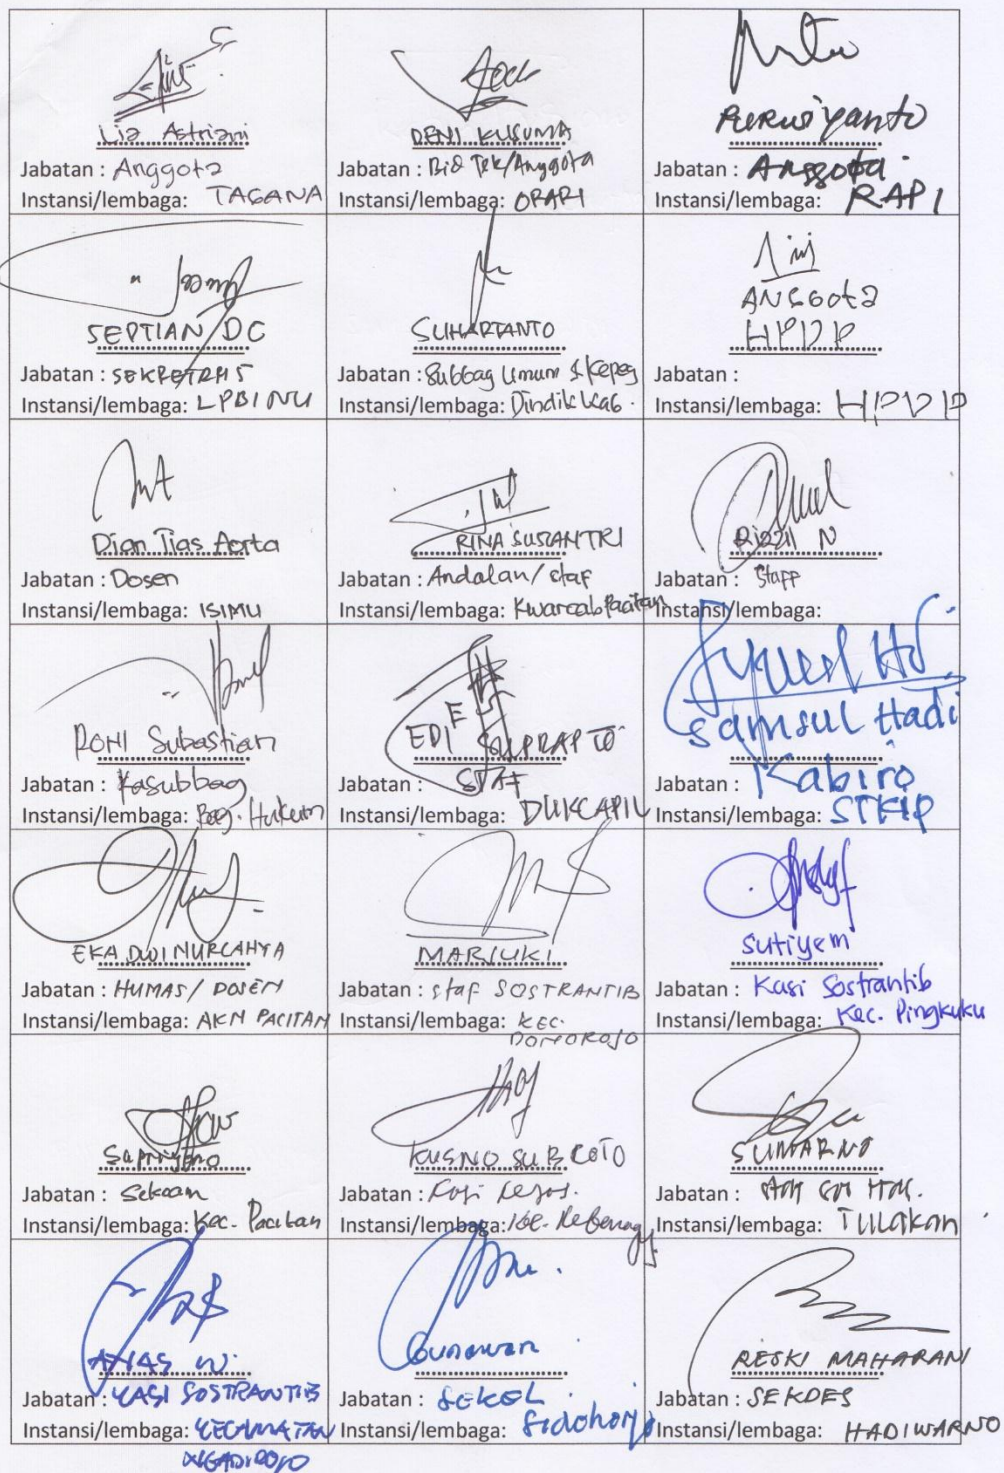 Lia Astriani
Jabatan : Anggota
Instansi/lembaga: TAGANA
DENI KUSUMA
Jabatan : Bid Tek/Anggota
Instansi/lembaga: ORARI
Purwiyanto
Jabatan : Anggota
Instansi/lembaga: RAPI
SEPTIAN DC
Jabatan : SEKRETARIS
Instansi/lembaga: LPBI NU
SUHARTANTO
Jabatan : Subbag Umum & Kepeg
Instansi/lembaga: Dindik Kab.
ANGGota
HPDP
Jabatan :
Instansi/lembaga: HPDP
Dian Tias Aorta
Jabatan : Dosen
Instansi/lembaga: ISIMU
RINA SUSANTRI
Jabatan : Andalan/staf
Instansi/lembaga: Kwarcab Pacitan
Rizal N
Jabatan : Staff
Instansi/lembaga:
RONI Subastian
Jabatan : Kasubbag
Instansi/lembaga: Bag. Hukum
EDI SUPRAPTO
Jabatan : STAF
Instansi/lembaga: DUKCAPIL
Samsul Hadi
Jabatan : Kabiro
Instansi/lembaga: STKIP
EKA DWI NURCAHYA
Jabatan : HUMAS/ DOSEN
Instansi/lembaga: AKN PACITAN
MARJUKI
Jabatan : staf SOSTRANTIB
Instansi/lembaga: KEC.
DONOROJO
Sutiyem
Jabatan : Kasi Sostrantib
Instansi/lembaga: Kec. Pingkuku
Supriyono
Jabatan : Sekcam
Instansi/lembaga: Kec. Pacitan
KUSNO SUBROTO
Jabatan : Kasi Kesos.
Instansi/lembaga: Kec. Kebonagg.
SUMARNO
Jabatan :
Instansi/lembaga: Tulakan
Jabatan : KASI SOSTRANTIB
Instansi/lembaga: KECAMATAN
NGADIROJO
Gunawan
Jabatan : SEKEL
Instansi/lembaga: Sidoharjo
RESKI MAHARANI
Jabatan : SEKDES
Instansi/lembaga: HADIWARNO